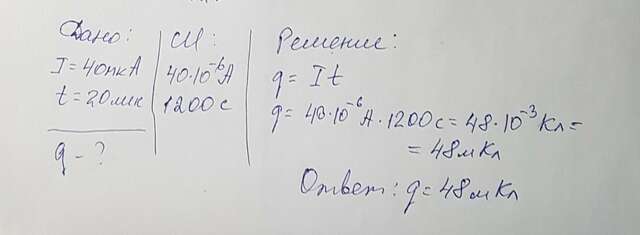 Дано:
I = 40мкА
t = 20мин
q - ?
СИ:
40·10⁻⁶А
1200 с
Решение:
q = It
q = 40·10⁻⁶А · 1200с = 48·10⁻³Кл =
= 48мКл
Ответ: q = 48мКл